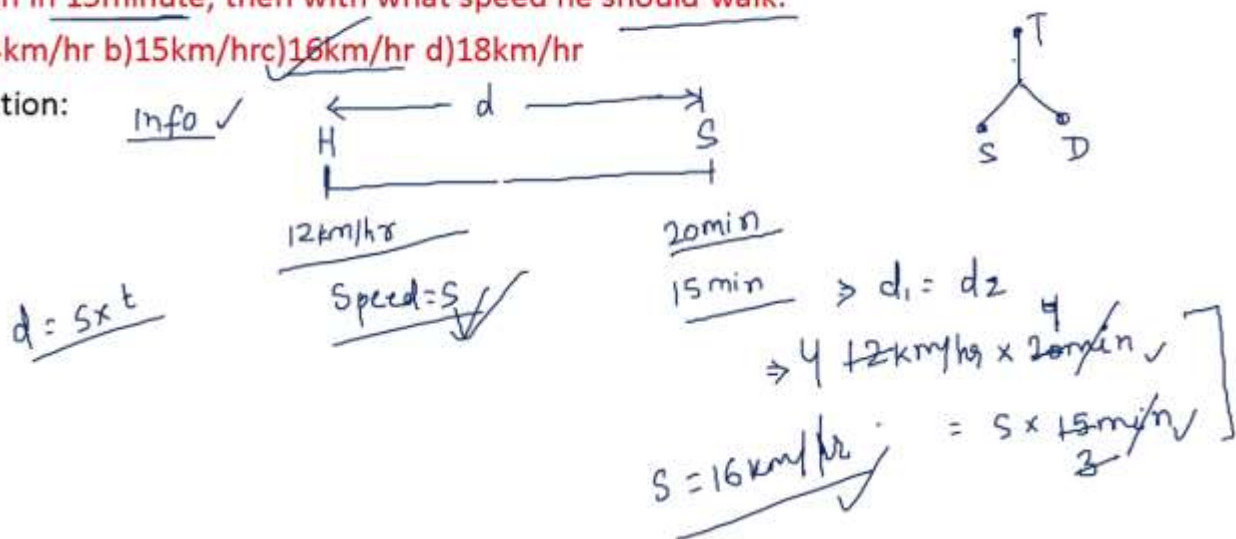 in 15minute, then with what speed he should walk.
km/hr b)15km/hrc)16km/hr d)18km/hr
tion:
Info ✓
d
H
S
T
S
D
12km/hr
20min
d = s×t
Speed=S
15min
⇒ d1 = d2
4
⇒ 4 12km/hr × 20min ✓
= S × 15min ✓
3
S = 16km/hr